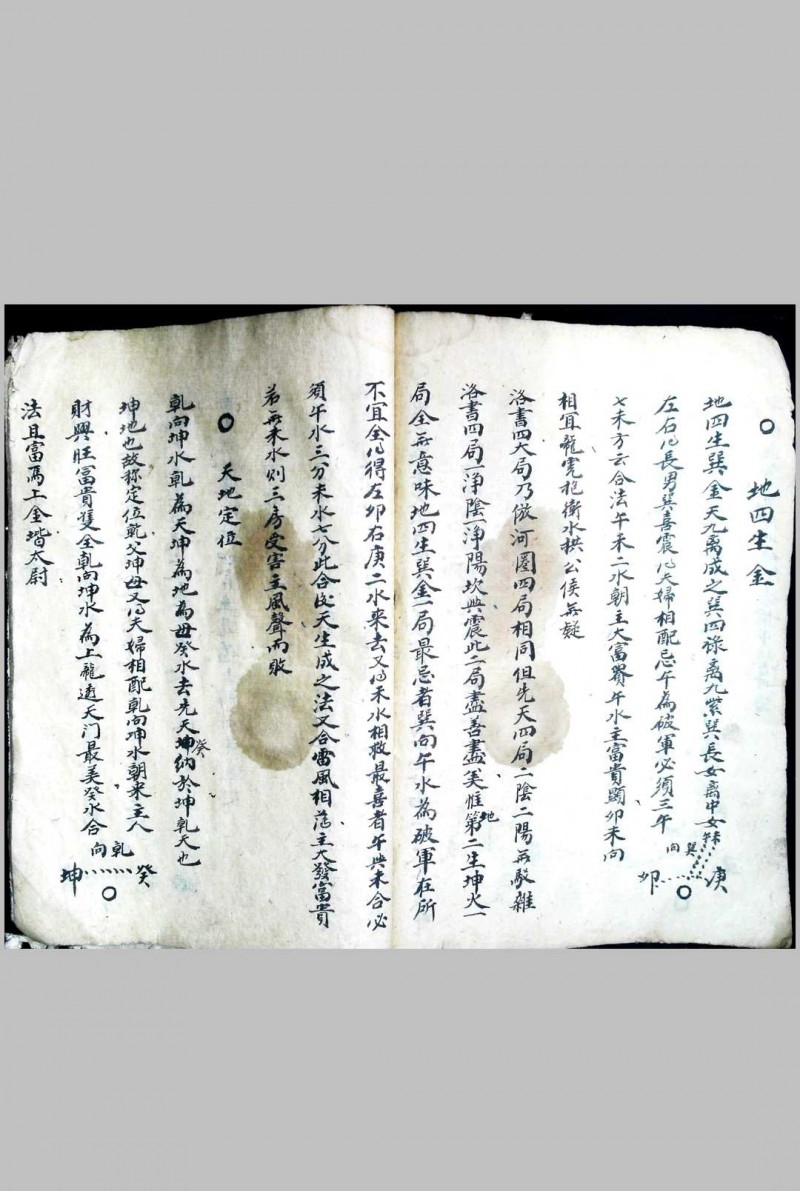 ○ 地四生金
地四生巽金天九离成之巽四祿离九紫巽長女离中女
左右以長男巽喜震以夫婦相配忌午為破軍必須三午
七未方云合法午未二水朝主大富貴午水主富貴顕卯未向
相宜龍虎抱衛水拱公侯無疑
巽向
庚 卯
○
洛書四大局乃倣河圖四局相同但先天四局二陰二陽無駁雜
洛書四局一淨陰一淨陽坎與震此二局盡善盡美惟第二地生坤火一
局全無意味地四生巽金一局最忌者巽向午水為破軍在所
不宜全以得左卯右庚二水来去又以未水相救最喜者午與未合必
須午水三分未水七分此合後天生成之法又合雷風相薄主大發富貴
若無未水則三房受害主風聲而敗
○ 天地定位
乾向坤水乾為天坤為地為母癸水去先天坤癸納於坤乾天也
坤地也故称定位乾父坤母又以夫婦相配乾向坤水朝来主人
財興旺富貴雙全乾向坤水為上龍透天门最美癸水合
法且富馬上金堦太尉
乾向
癸 坤
○